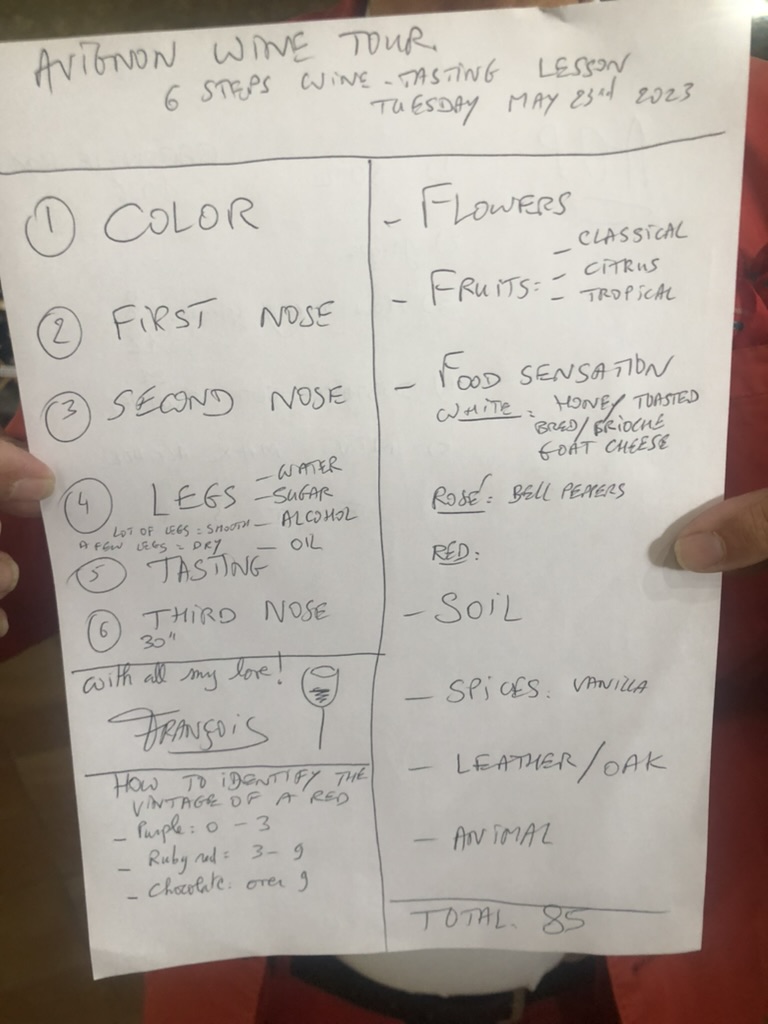 AVIGNON WINE TOUR.
6 STEPS WINE-TASTING LESSON
TUESDAY MAY 23rd 2023
1 COLOR
2 FIRST NOSE
3 SECOND NOSE
4 LEGS
- WATER
- SUGAR
- ALCOHOL
- OIL
LOT OF LEGS = SMOOTH
A FEW LEGS = DRY
5 TASTING
6 THIRD NOSE
30"
with all my love!
FRANÇOIS
HOW TO IDENTIFY THE
VINTAGE OF A RED
- Purple: 0 - 3
- Ruby red: 3 - 9
- Chocolate: over 9
- FLOWERS
- FRUITS:
- CLASSICAL
- CITRUS
- TROPICAL
- FOOD SENSATION
WHITE: HONEY TOASTED
BRED/BRIOCHE
GOAT CHEESE
ROSÉ: BELL PEPPERS
RED:
- SOIL
- SPICES: VANILLA
- LEATHER/OAK
- ANIMAL
TOTAL. 85